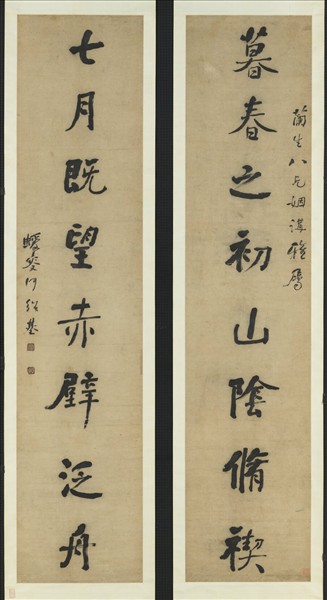 蘭生八兄姻講雅屬
暮春之初山陰脩禊
七月既望赤壁泛舟
蝯叟何紹基